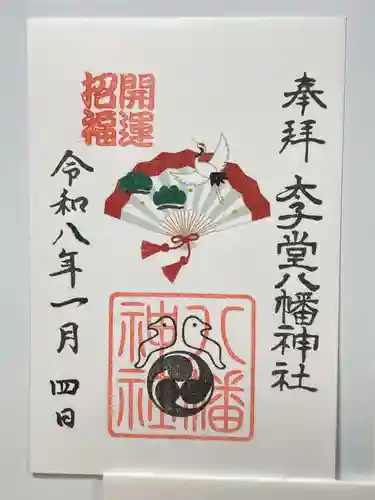 奉拝
太子堂八幡神社
開運
招福
八幡
神社
令和八年一月四日